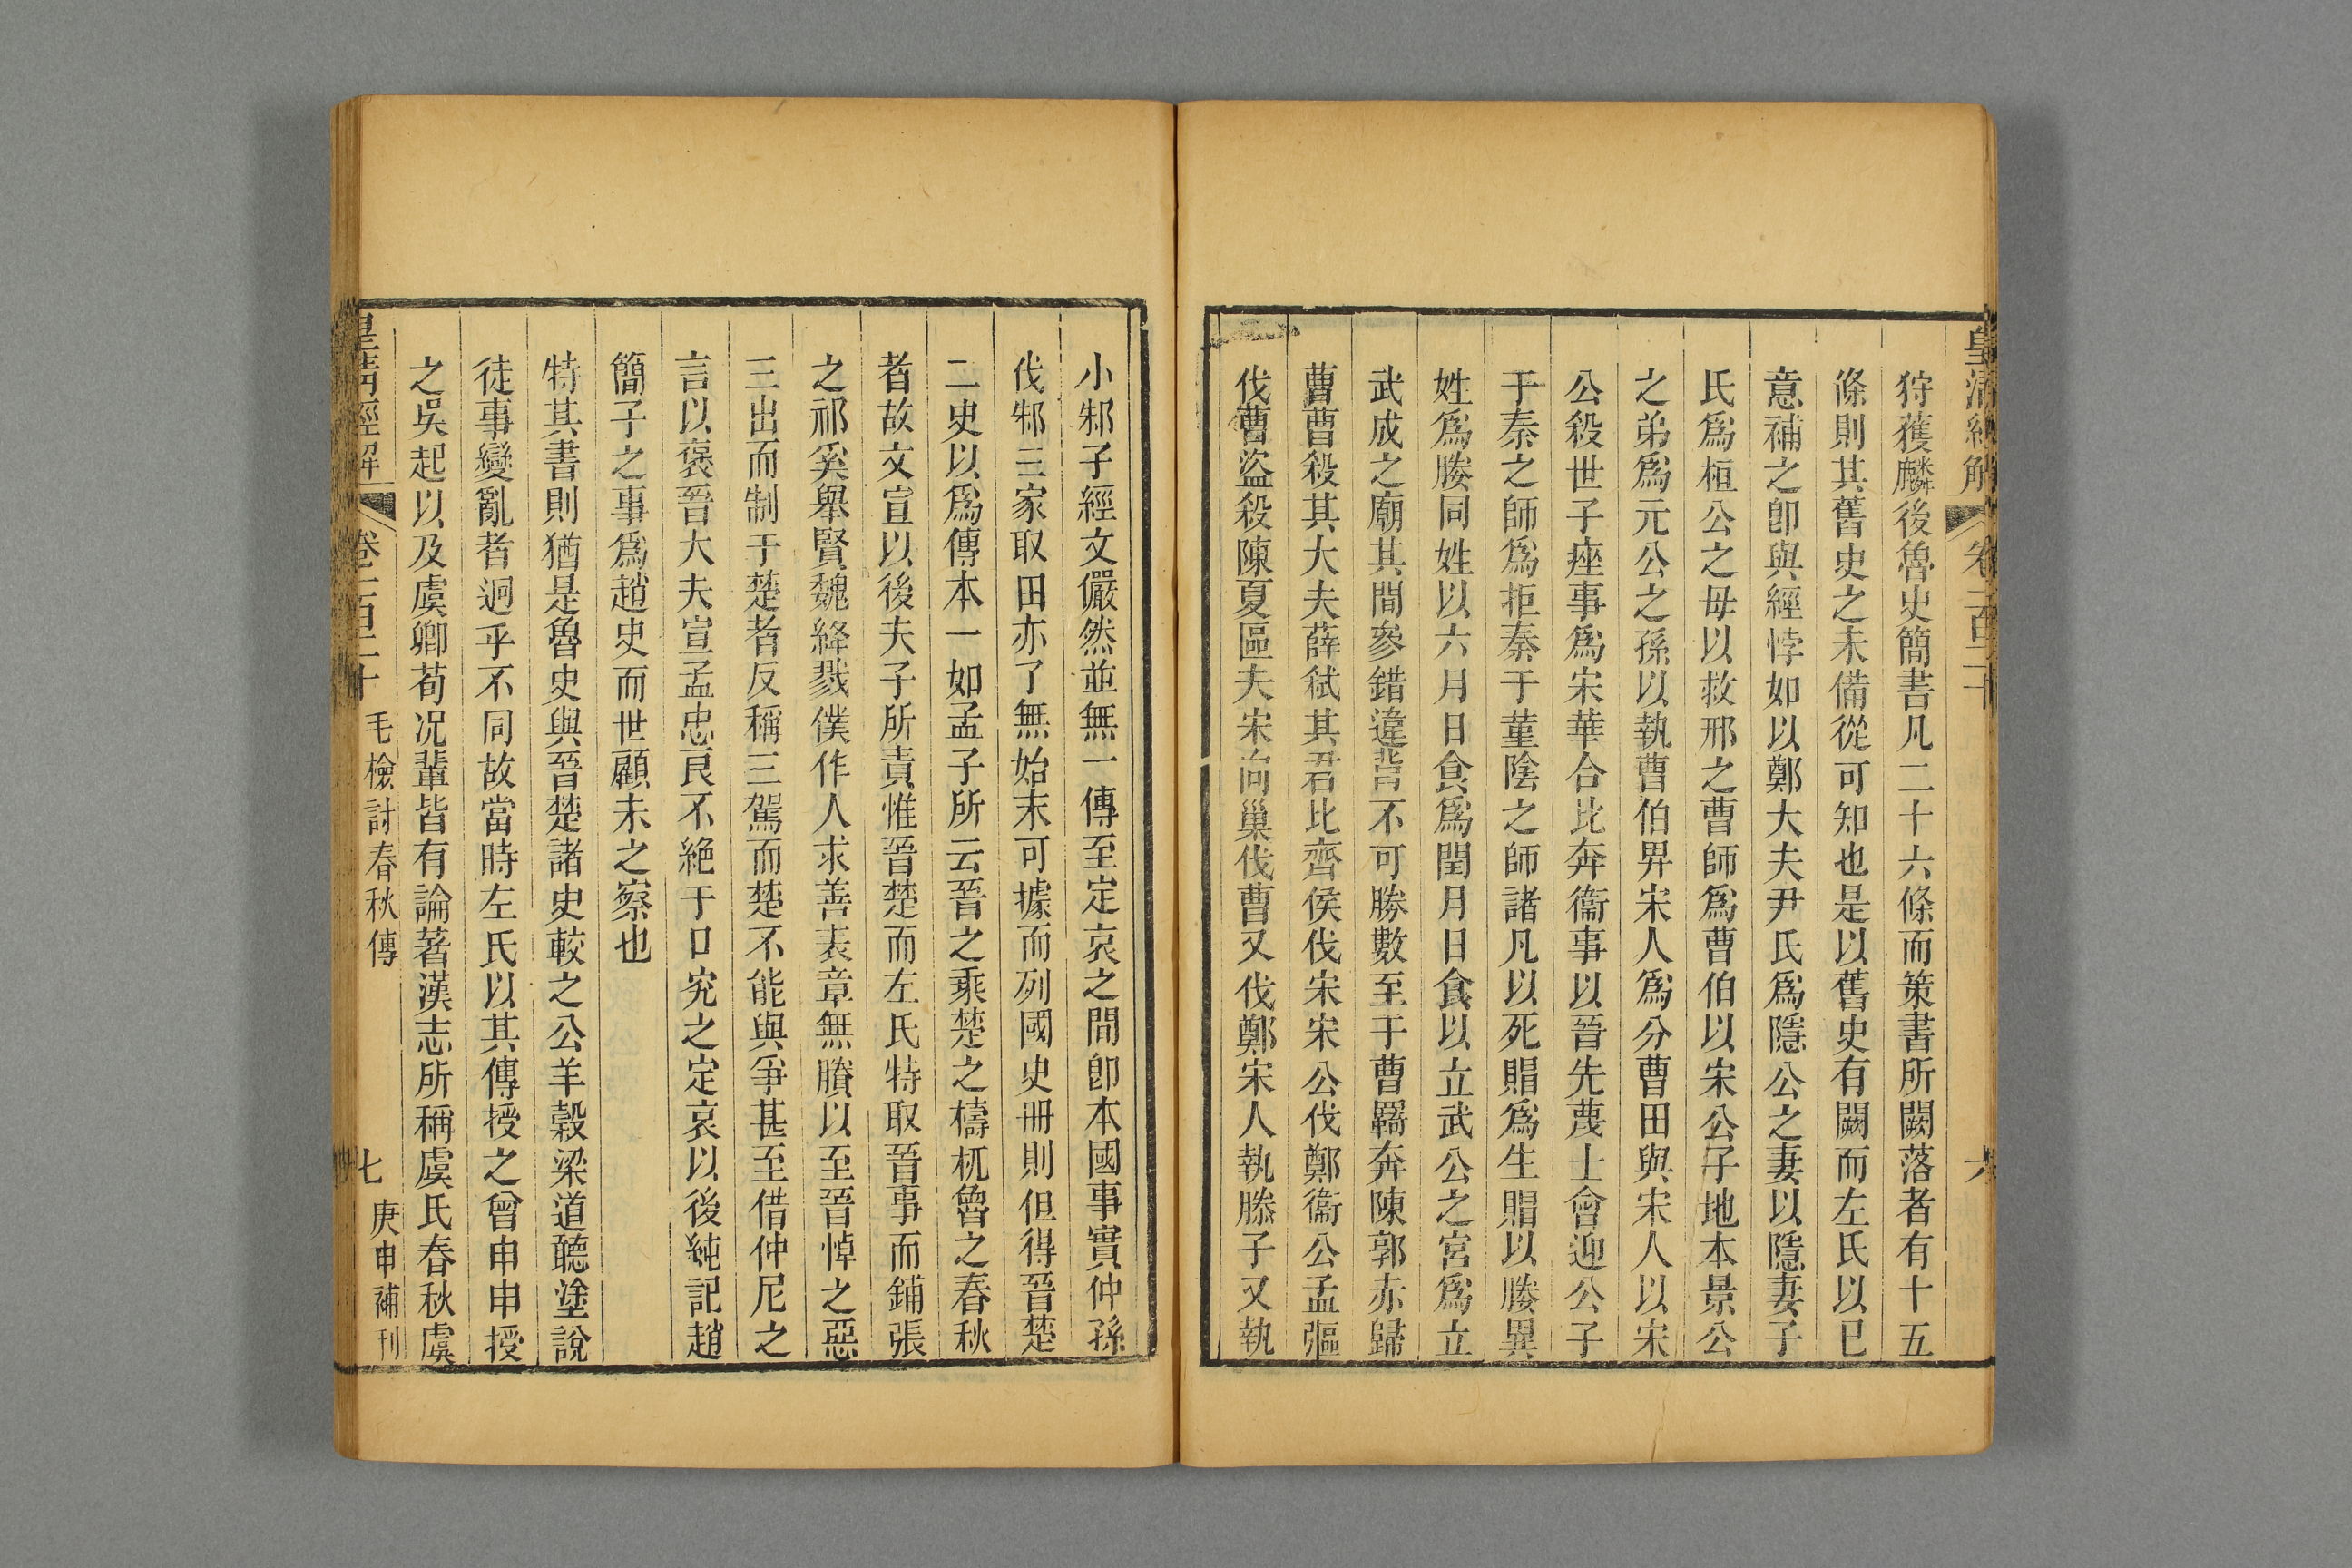 皇清經解
卷一百二十
六
狩獲麟後魯史簡書凡二十六條而策書所闕落者有十五
條則其舊史之未備從可知也是以舊史有闕而左氏以已
意補之卽與經悖如以鄭大夫尹氏爲隱公之妻以隱妻子
氏爲桓公之母以救邢之曹師爲曹伯以宋公子地本景公
之弟爲元公之孫以執曹伯畀宋人爲分曹田與宋人以宋
公殺世子痤事爲宋華合比奔衞事以晉先蔑士會迎公子
于秦之師爲拒秦于菫陰之師諸凡以死賵爲生賵以媵異
姓爲媵同姓以六月日食爲閏月日食以立武公之宮爲立
武成之廟其間參錯違背不可勝數至于曹羈奔陳郭赤歸
曹曹殺其大夫薛弑其君比齊侯伐宋宋公伐鄭衞公孟彄
伐曹盜殺陳夏區夫宋向巢伐曹又伐鄭宋人執滕子又執
小邾子經文儼然並無一傳至定哀之間卽本國事實仲孫
伐邾三家取田亦了無始末可據而列國史冊則但得晉楚
二史以爲傳本一如孟子所云晉之乘楚之檮杌魯之春秋
者故文宣以後夫子所責惟晉楚而左氏特取晉事而鋪張
之祁奚舉賢魏絳戮僕作人求善表章無賸以至晉悼之惡
三出而制于楚者反稱三駕而楚不能與爭甚至借仲尼之
言以褒晉大夫宣孟忠良不絕于口究之定哀以後純記趙
簡子之事爲趙史而世顧未之察也
特其書則猶是魯史與晉楚諸史較之公羊穀梁道聽塗說
徒事變亂者迥乎不同故當時左氏以其傳授之曾申申授
之吳起以及虞卿荀況輩皆有論著漢志所稱虞氏春秋虞
皇清經解
卷一百二十
毛檢討春秋傳
七
庚申補刊